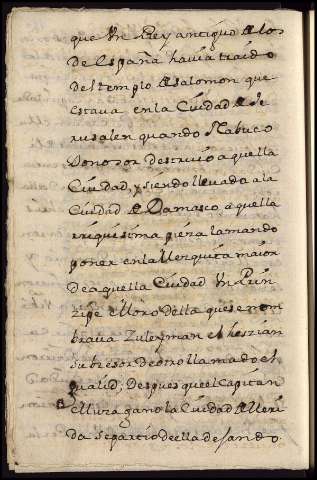 que Vn Rey antiguo de los
de españa havia traido
del templo de salomon que
estava en la Ciudad de Je
rusalen quando Nabuco
Donosor destruio a quella
Ciudad, y siendo llevada a la
Ciudad de Damasco a quella
rriquissima pieza la mando
poner en la Mezquita maior
de a quella Ciudad Vn Prin
zipe Moro della que se nom
brava Zuleyman el heszian
subzesor de otro llamado el
qualid; Despues que el Capitan
el Muza gano la Ciudad de Meri
da se partio de ella dejando